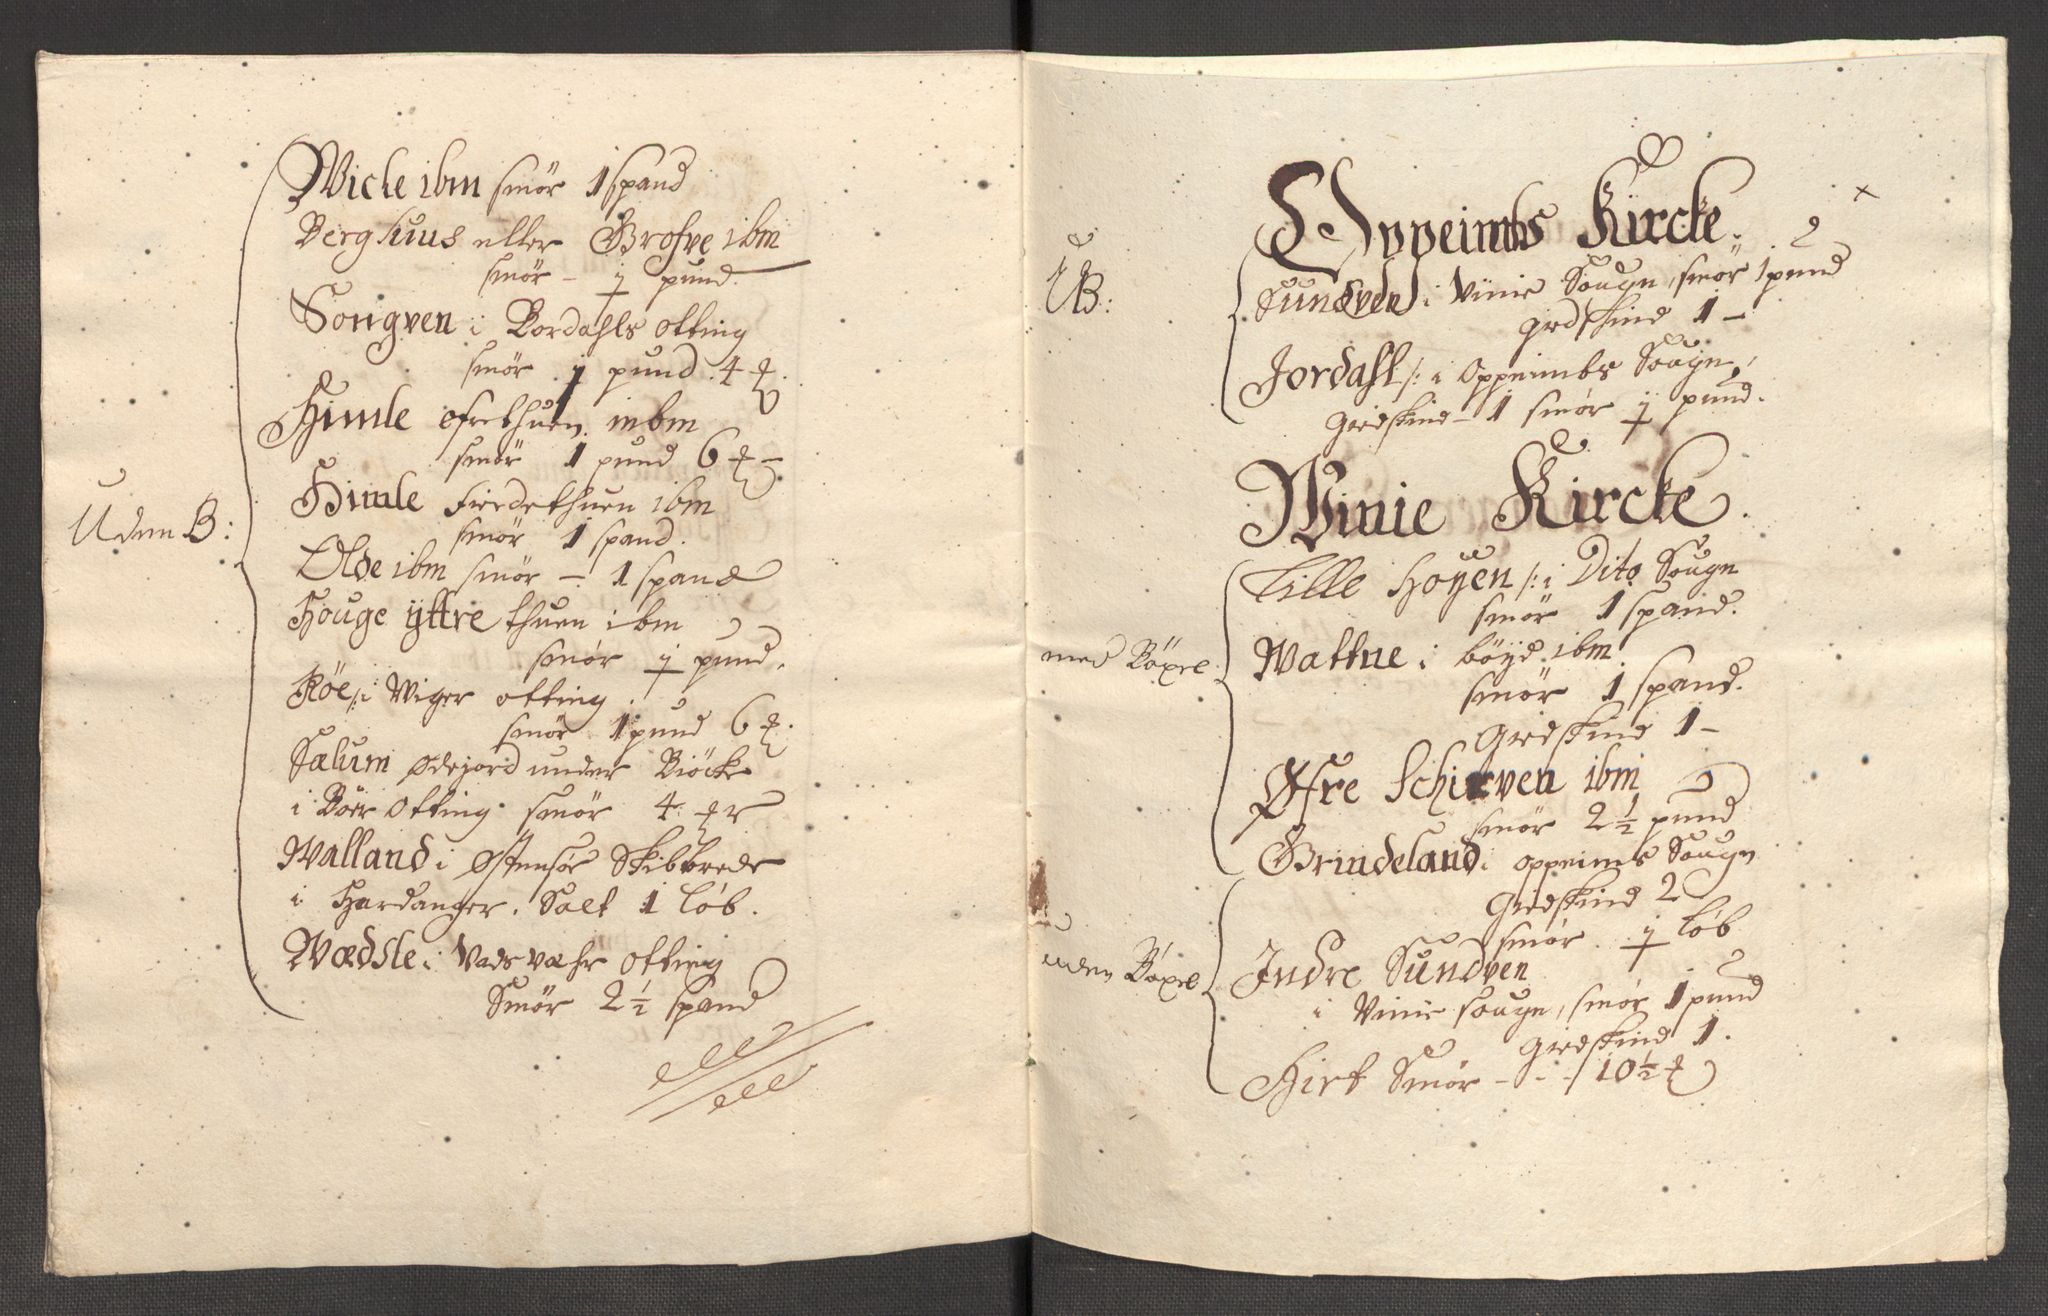 Wicke ibm smör 1 spand
Berghuus eller Grofve ibm
smör - j pund.
Songven i Bordahls otting
smör j pund 4 ℔.
Himle ofrethuen inbm
smör 1 pund 6 ℔ -
Uden B:
Himle Fierdethuen ibm
smör 1 spand.
Olde ibm smör - 1 spand
Houge yttre thuen ibm
smör j pund.
Röe /: i Wiger otting
smör 1 pund 6 ℔.
Sælum ødejord under Biöcke
i Böer Otting smör 4 ℔r
Walland i Østensöe Skibbrede
i Hardanger. Salt 1 Löb.
Wædsle i Vads væhr Otting
Smör 2½ spand
Oppeimbs Kircke.
UB:
Sundven i Vinie Sougn, smör 1 pund
giedskind 1 -
Jordahl /: i Oppeimbs Sougn,
giedskind - 1 smör j pund.
Winie Kircke.
Lille Hoÿen /: i Dito Sougn
smör 1 spand.
med Böxel
Wattne i böÿd ibm
smör 1 spand.
Giedskind 1 -
Øfre Schierven ibm
smör 2½ pund
Grindeland i oppeims Sougn
Giedskind 2
smör j Löb
uden Böxel
Indre Sundven
i Vinie sougn, smör 1 pund
giedskind 1.
Hirt Smör - - - 10½ ℔